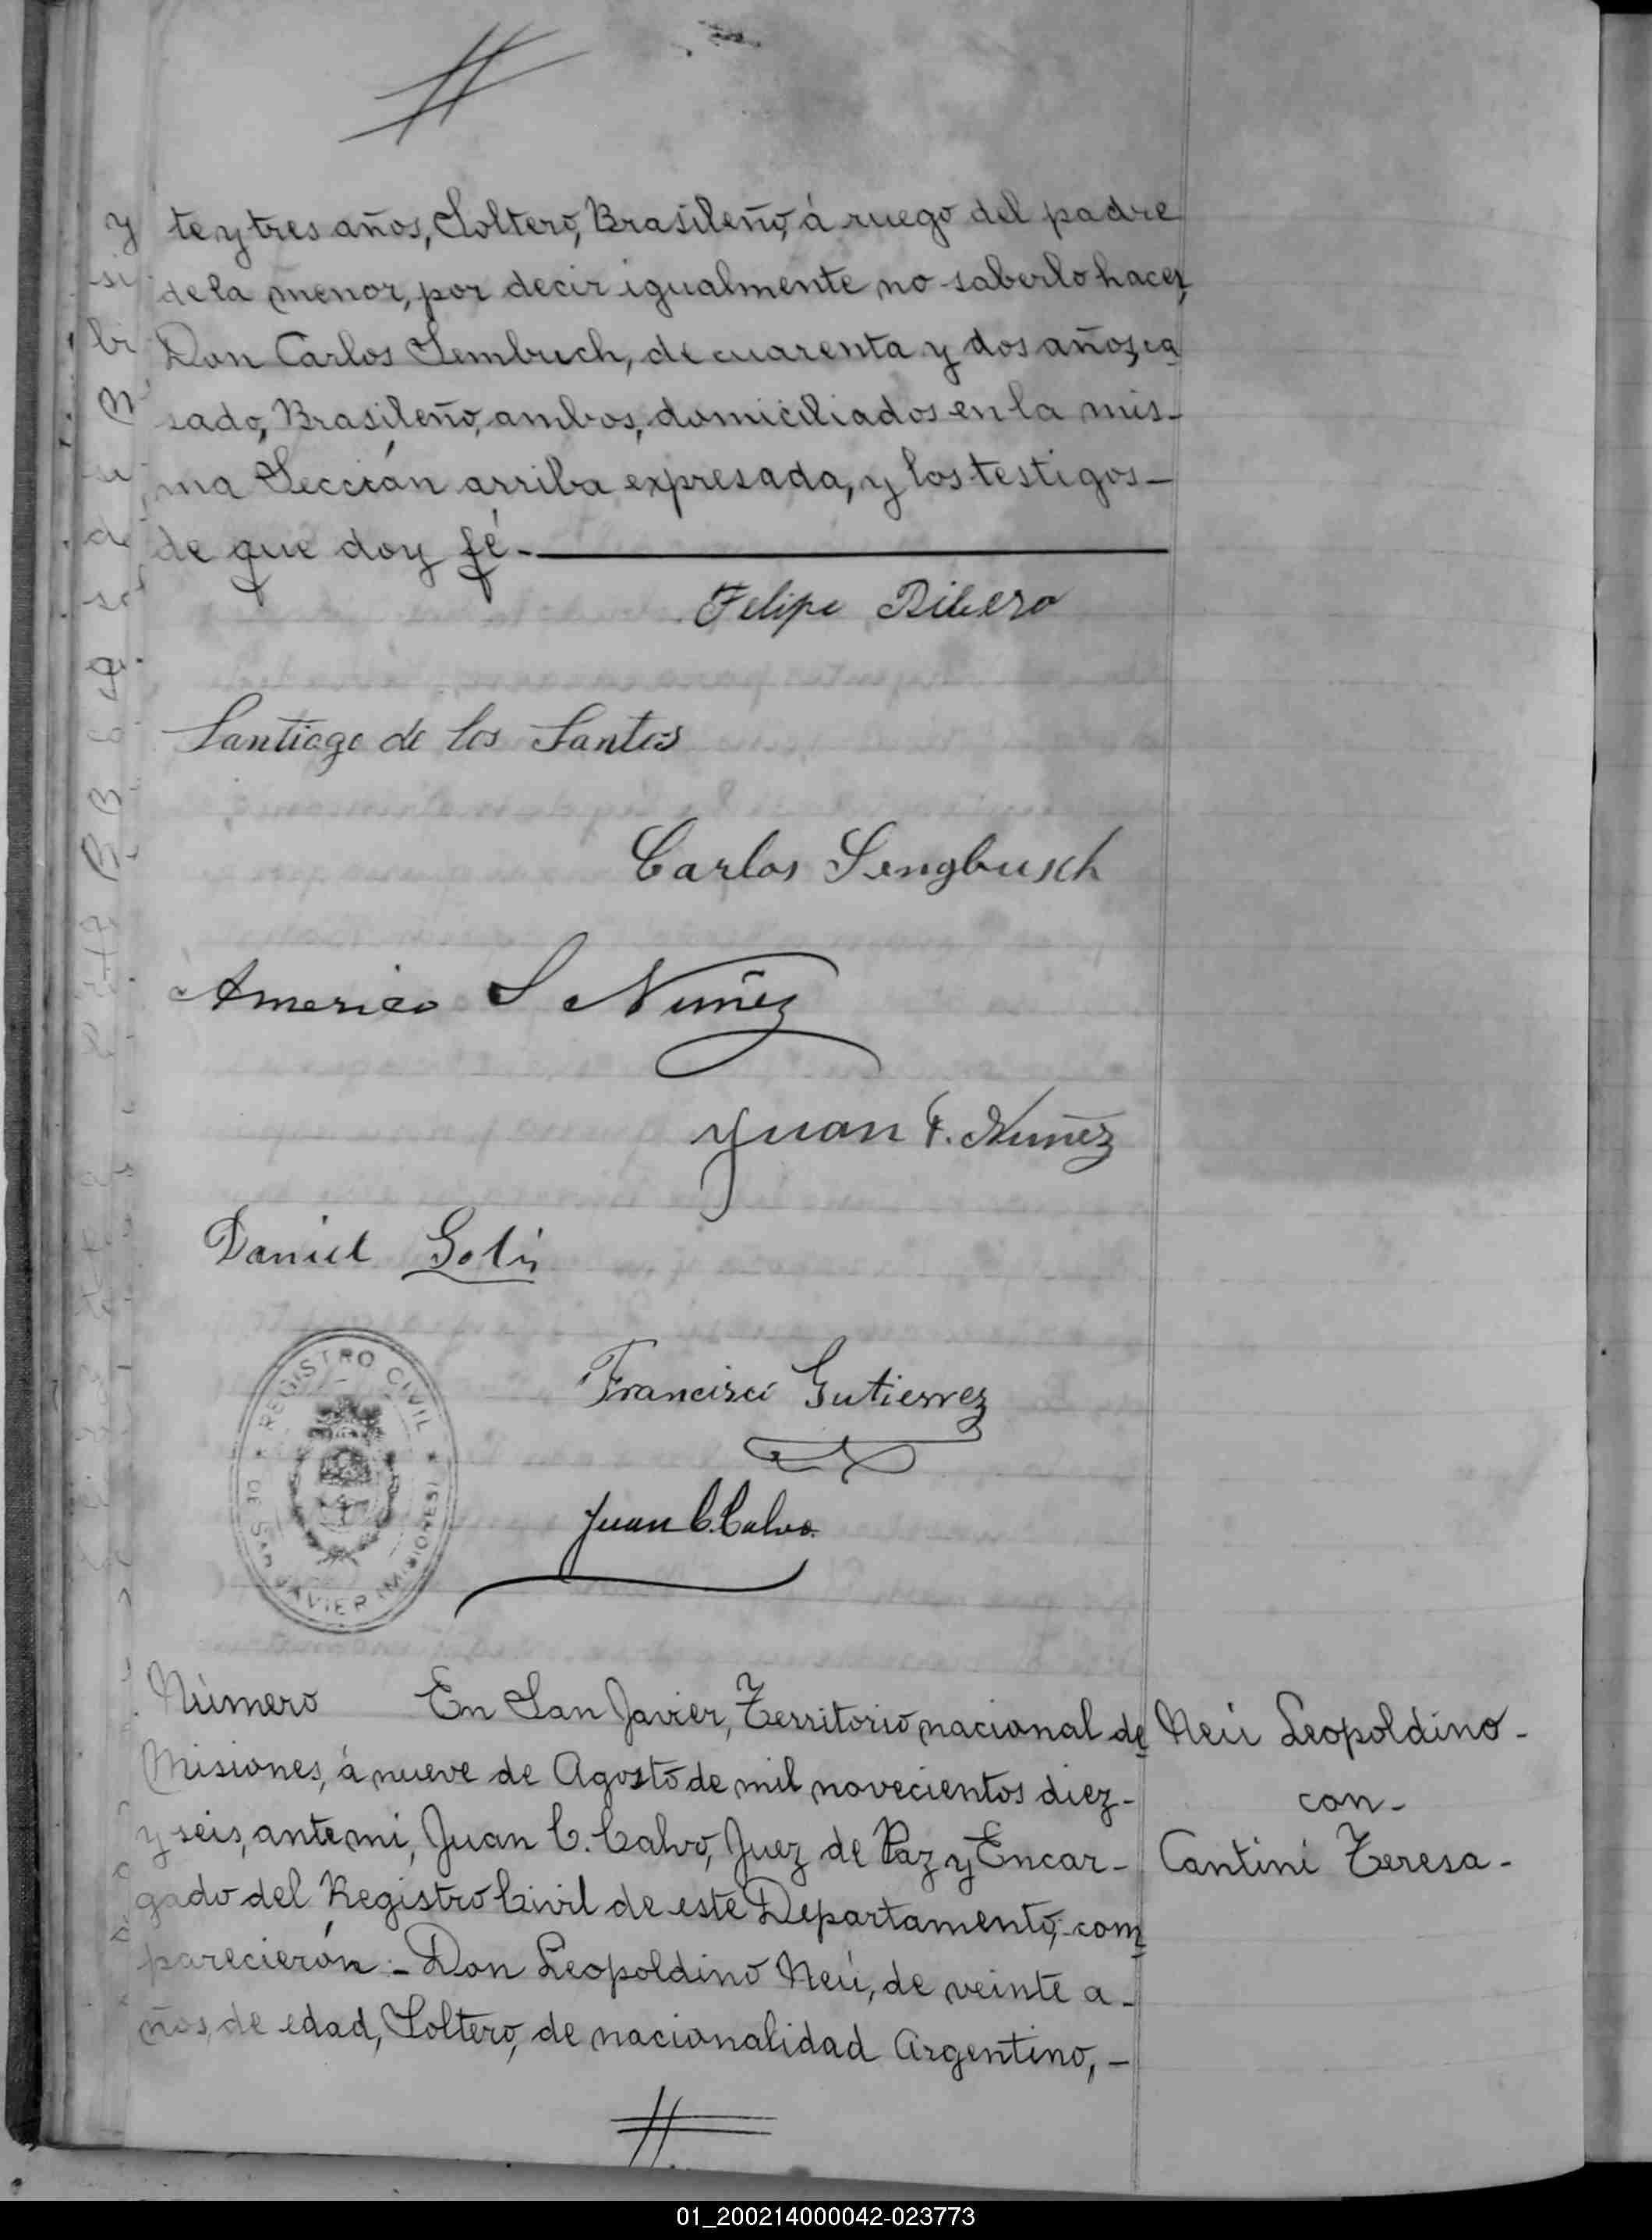 te y tres años, Soltero, Brasileño, á ruego del padre
de la menor, por decir igualmente no saberlo hacer,
Don Carlos Sembuch, de cuarenta y dos años, ca
sado, Brasileño, ambos, domiciliados en la mis-
ma Sección arriba expresada, y los testigos-
de que doy fé.-
Felipe Ribero
Santiago de los Santos
Carlos Sengbusch
Americo S Nuñez
Juan F. Nuñez
Daniel
REGISTRO CIVIL
DE SAN JAVIER (MISIONES)
Francisco Gutierrez
Juan C. Calvo
Número En San Javier, Territorio nacional de
Misiones, á nueve de Agosto de mil novecientos diez-
y seis, ante mi, Juan C. Calvo, Juez de Paz y Encar-
gado del Registro Civil de este Departamento, com
parecierón:- Don Leopoldino Neú, de veinte a-
ños, de edad, Soltero, de nacionalidad Argentino,-
Neú Leopoldino-
con-
Cantini Teresa-
01_200214000042-023773